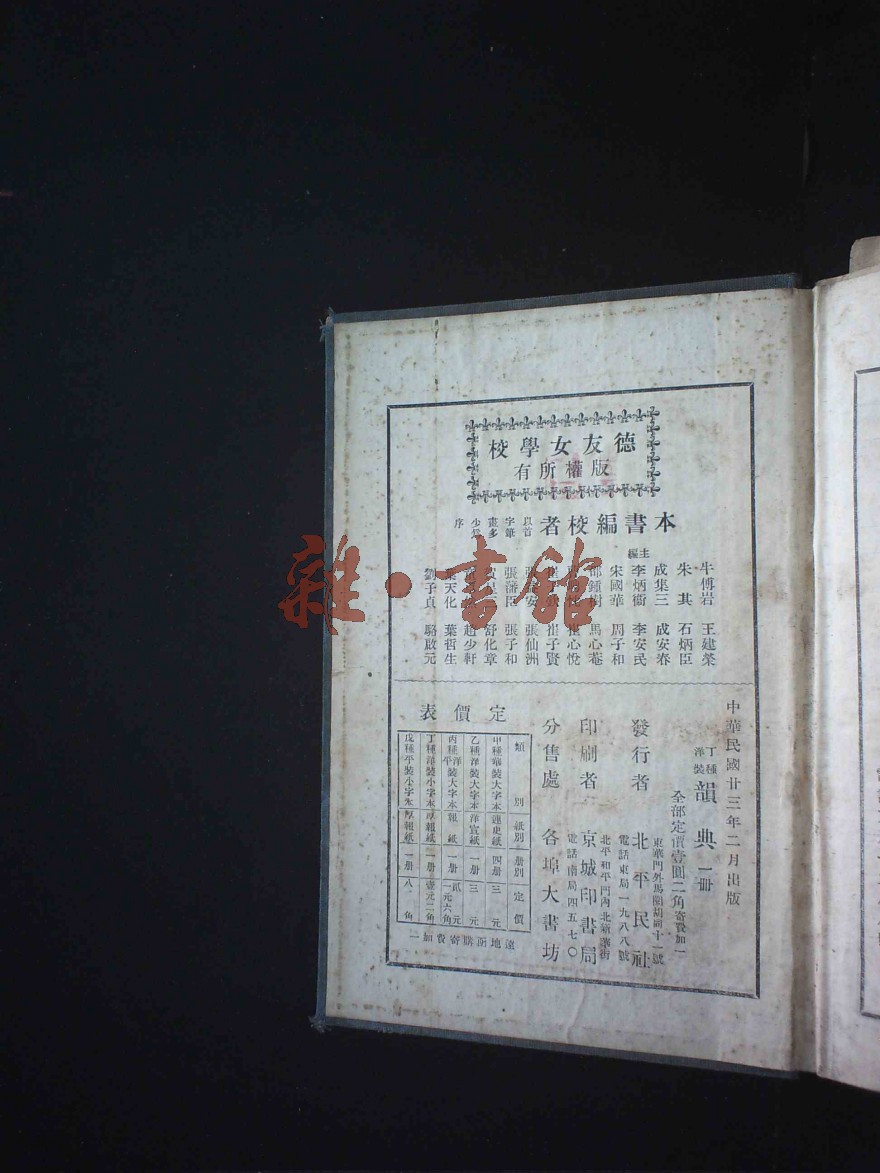 德友女學校
版權所有
本書編校者
以首
字筆
畫多
少爲
序
主編
牛傅岩 王建榮
朱其 石炳臣
成集三 成安春
李炳衞 李安民
宋國華 周子和
邵鍾 馬心菴
崔心悅
崔子賢
安 張仙洲
張藩臣 張子和
賀 舒化章
趙少軒
葉天化 葉哲生
劉子貞 駱啟元
中華民國廿三年二月出版
丁種
洋裝
韻典一冊
全部定價壹圓二角寄費加一
發行者 北平民社
東華門外馬圈胡同十一號
電話東局一九八八號
印刷者 京城印書局
北平和平門內北新華街
電話南局四五七〇
分售處 各埠大書坊
定價表
類別 紙別 册別 定價
甲種華裝大字本 連史紙 四册 三元
乙種洋裝大字本 洋宣紙 一册 三元
丙種洋平裝大字本 報紙 一册 貳元一元六角
丁種洋裝小字本 厚報紙 一册 壹元二角
戊種平裝小字本 厚報紙 一册 八角
遠地函購寄費加一
雜·書館